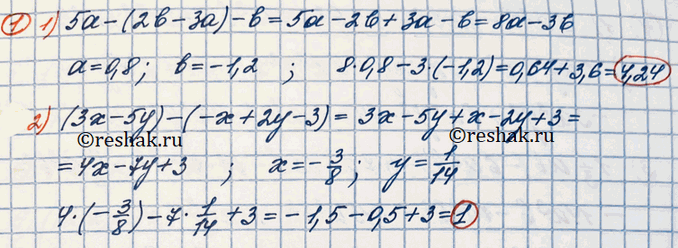 ① 1) 5a-(2b-3a)-b=5a-2b+3a-b=8a-3b
a=0,8; b=-1,2 ; 8·0,8-3·(-1,2)=0,64+3,6=4,24
2) (3x-5y)-(-x+2y-3)=3x-5y+x-2y+3=
©reshak.ru ©reshak.ru
=4x-7y+3 ; x=-3/8; y=1/14
4·(-3/8)-7·1/14+3=-1,5-0,5+3=1